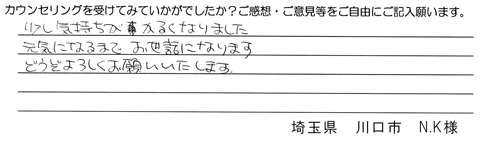 カウンセリングを受けてみていかがでしたか？ご感想・ご意見等をご自由にご記入願います。
少し気持ちがかるくなりました
元気になるまで お世話になります
どうぞよろしくお願いいたします。
埼玉県　川口市　N.K様